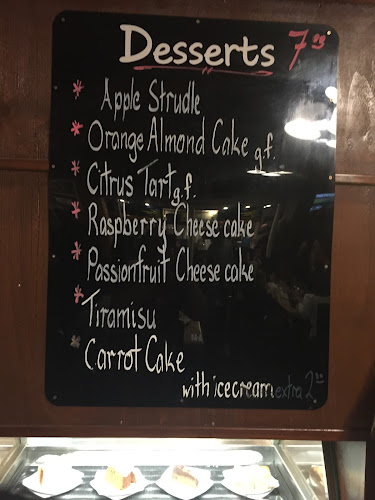 Desserts 7.95
* Apple Strudle
* Orange Almond Cake g.f.
* Citrus Tart g.f.
* Raspberry Cheese cake
* Passionfruit Cheese cake
* Tiramisu
* Carrot Cake
with icecream extra 2